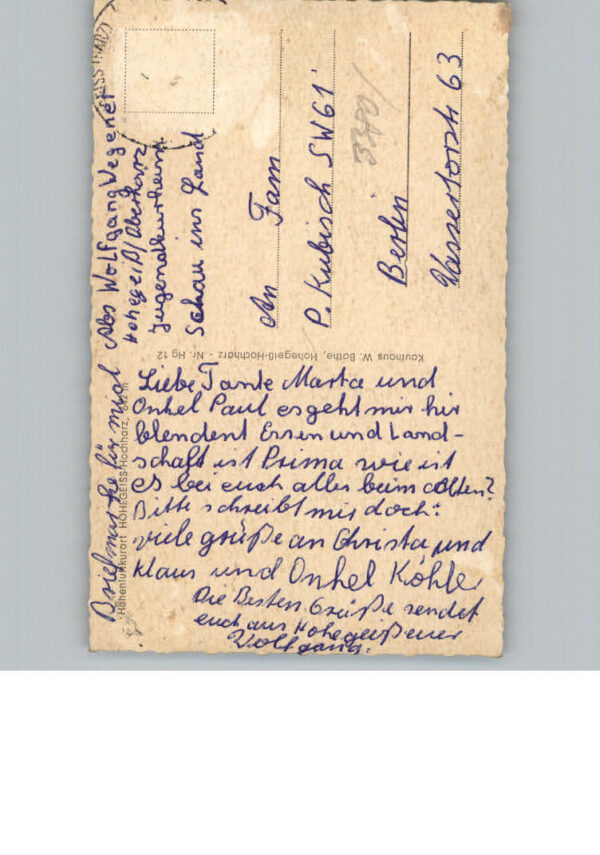 Liebe Tante Marta und
Onkel Paul es geht mir hir
blendent Essen und Land-
schaft ist Prima wie ist
es bei euch alles beim alten?
Bitte schreibt mir doch.
viele grüße an Christa und
Klaus und Onkel Köhler
Die Besten Grüße sendet
euch aus Hohegeiß euer
Wolfgang.
Briefmarke für mich
Höhenluftkurort HOHEGEISS-Hochharz, 642 m
Kaufhaus W. Bothe, Hohegeiß-Hochharz - Nr. Hg 12
Abs Wolfgang Wegener
Hohegeiß/Oberharz
Jugendkurheim
Schau ins Land
An Fam
P. Kubisch SW61
Berlin
Wassertorstr 63